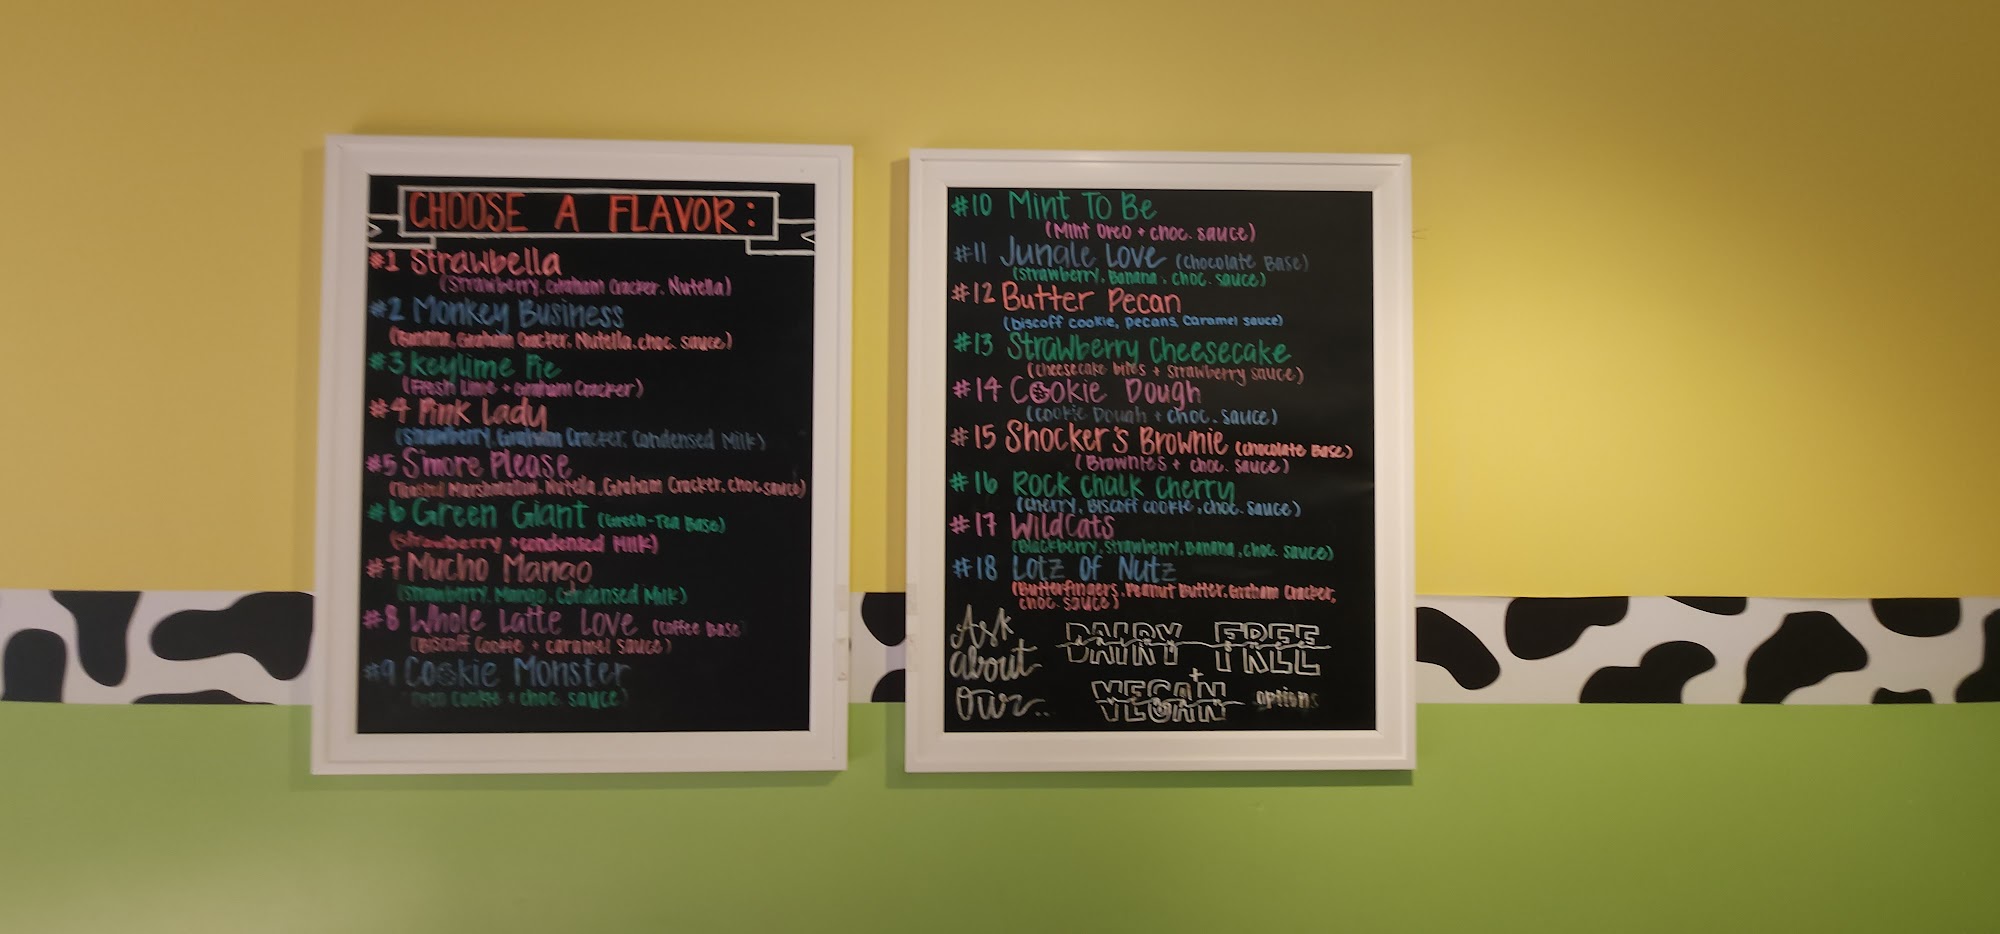 CHOOSE A FLAVOR:
#1 Strawbella
(Strawberry, Graham Cracker, Nutella)
#2 Monkey Business
(Banana, Graham Cracker, Nutella, choc. sauce)
#3 Keylime Pie
(Fresh Lime + Graham Cracker)
#4 Pink Lady
(Strawberry, Graham Cracker, Condensed Milk)
#5 S'more Please
(Toasted Marshmallow, Nutella, Graham Cracker, choc sauce)
#6 Green Giant (Green-Tea Base)
(Strawberry + condensed Milk)
#7 Mucho Mango
(Strawberry, Mango, Condensed Milk)
#8 Whole Latte Love (Coffee Base)
(Biscoff Cookie + caramel sauce)
#9 Cookie Monster
(Oreo Cookie + choc. sauce)
#10 Mint To Be
(Mint Oreo + choc. sauce)
#11 Jungle Love (Chocolate Base)
(Strawberry, Banana, choc. sauce)
#12 Butter Pecan
(biscoff cookie, pecans, caramel sauce)
#13 Strawberry Cheesecake
(Cheesecake bites + strawberry sauce)
#14 Cookie Dough
(Cookie Dough + choc. sauce)
#15 Shocker's Brownie (chocolate Base)
(Brownies + choc. sauce)
#16 Rock Chalk Cherry
(Cherry, Biscoff cookie, choc. sauce)
#17 WildCats
(Blackberry, Strawberry, Banana, choc. sauce)
#18 Lotz Of Nutz
(Butterfingers, Peanut Butter, Graham Cracker,
choc. sauce)
Ask about our..
DAIRY FREE
+
VEGAN options